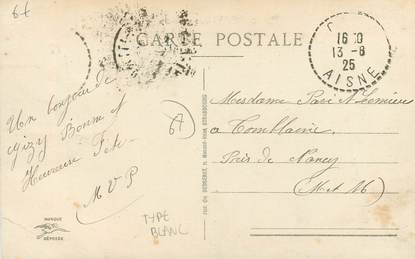 67
CARTE POSTALE
16 30
13-8
25
AISNE
Un bonjour de
Gizy Bonne et
Heureuse Fête
M V P
67
Mesdame
a Tomblaine
Près de Nancy
(M et M)
MARQUE
DÉPOSÉE
TYPE
BLANC